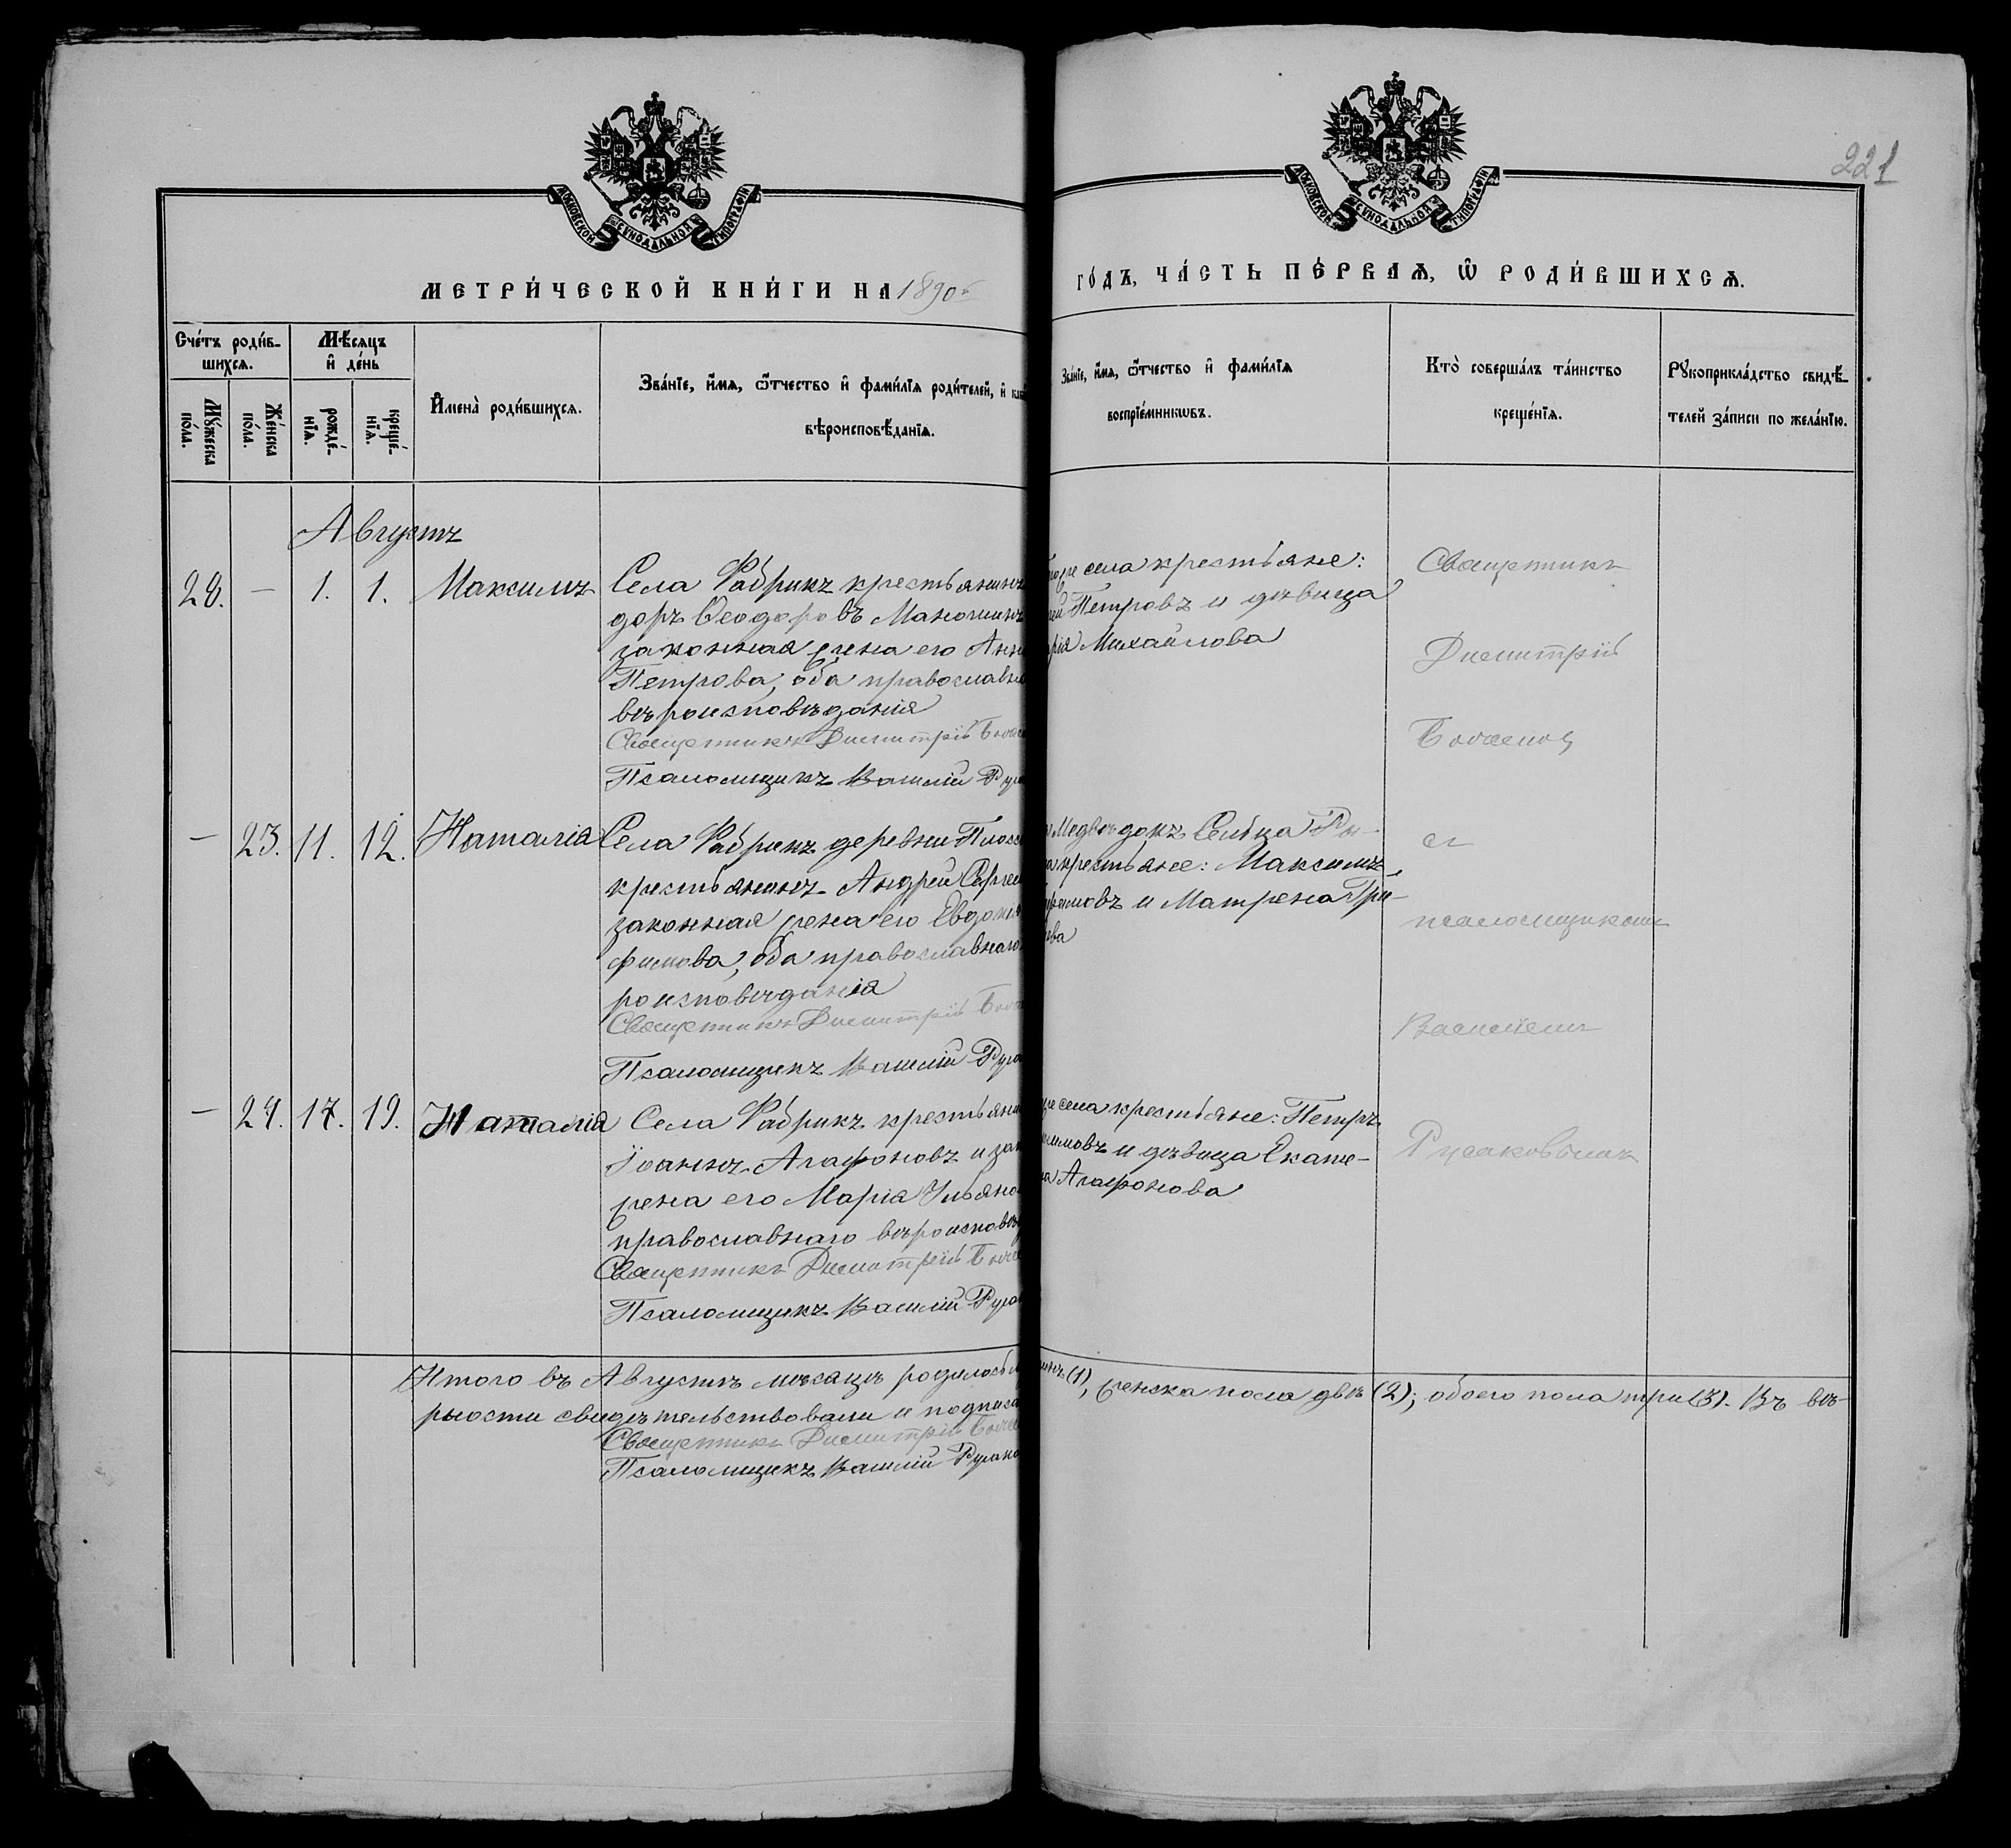 221
МОСКОВСКОЙ СѴНОДАЛЬНОЙ ТИПОГРАФІИ
МОСКОВСКОЙ СѴНОДАЛЬНОЙ ТИПОГРАФІИ
МЕТРИ́ЧЕСКОЙ КНИ́ГИ НА 1890й
ГО́ДЪ, ЧА́СТЬ ПЕ́РВАѦ, Ѽ РОДИ́ВШИХСѦ.
Сче́тъ роди́в-
шихсѧ.
Мꙋ́жеска по́ла.
Же́нска по́ла.
Мѣ́сѧцъ
и҆ де́нь
рожде́-
нїѧ.
креще́-
нїѧ.
И҆мена̀ роди́вшихсѧ.
Зва́нїе, и҆́мѧ, ѻ҆́тчество и҆ фами́лїѧ роди́телей, и҆
вѣроисповѣ́данїѧ.
Зва́нїе, и҆́мѧ, ѻ҆́тчество и҆ фами́лїѧ
воспрїе́мникѡвъ.
Кто̀ соверша́лъ та́инство
креще́нїѧ.
Рꙋкоприкла́дство свидѣ́-
телей за́писи по жела́нїю.
Августъ
28. — 1. 1. Максимъ
Села Фабрикъ крестьянинъ
доръ Ѳеодоровъ Маношинъ
законная жена его Анн
Петрова, оба православна
вѣроисповѣданія
Священникъ Димитрій
Псаломщикъ Василій
села крестьяне:
Петровъ и дѣвица
рія Михайлова
Священникъ
Димитрій
— 23. 11. 12. Наталія
Села Фабрикъ деревни
крестьянинъ Андрей Сергее
законная жена его Евдокі
фимова, оба православнаго
роисповѣданія
Священникъ Димитрій
Псаломщикъ Василій
Медвѣдокъ Сельца Ры-
крестьяне: Максимъ
и Матрена Гри-
ева
съ
псаломщикомъ
Василіемъ
— 24. 17. 19. Наталія
Села Фабрикъ крестьяни
Іоаннъ Агафоновъ и зак
жена его Марія Ульяно
православнаго вѣроисповѣ
Священникъ Димитрій
Псаломщикъ Василій
села крестьяне: Петръ
симовъ и дѣвица Екате-
на Агафонова
Русаковымъ
Итого въ Августѣ мѣсяцѣ родилось м
(1), женска пола двѣ (2); обоего пола три (3). Въ вѣ-
рности свидѣтельствовали и подписа
Священникъ Димитрій
Псаломщикъ Василій Русако